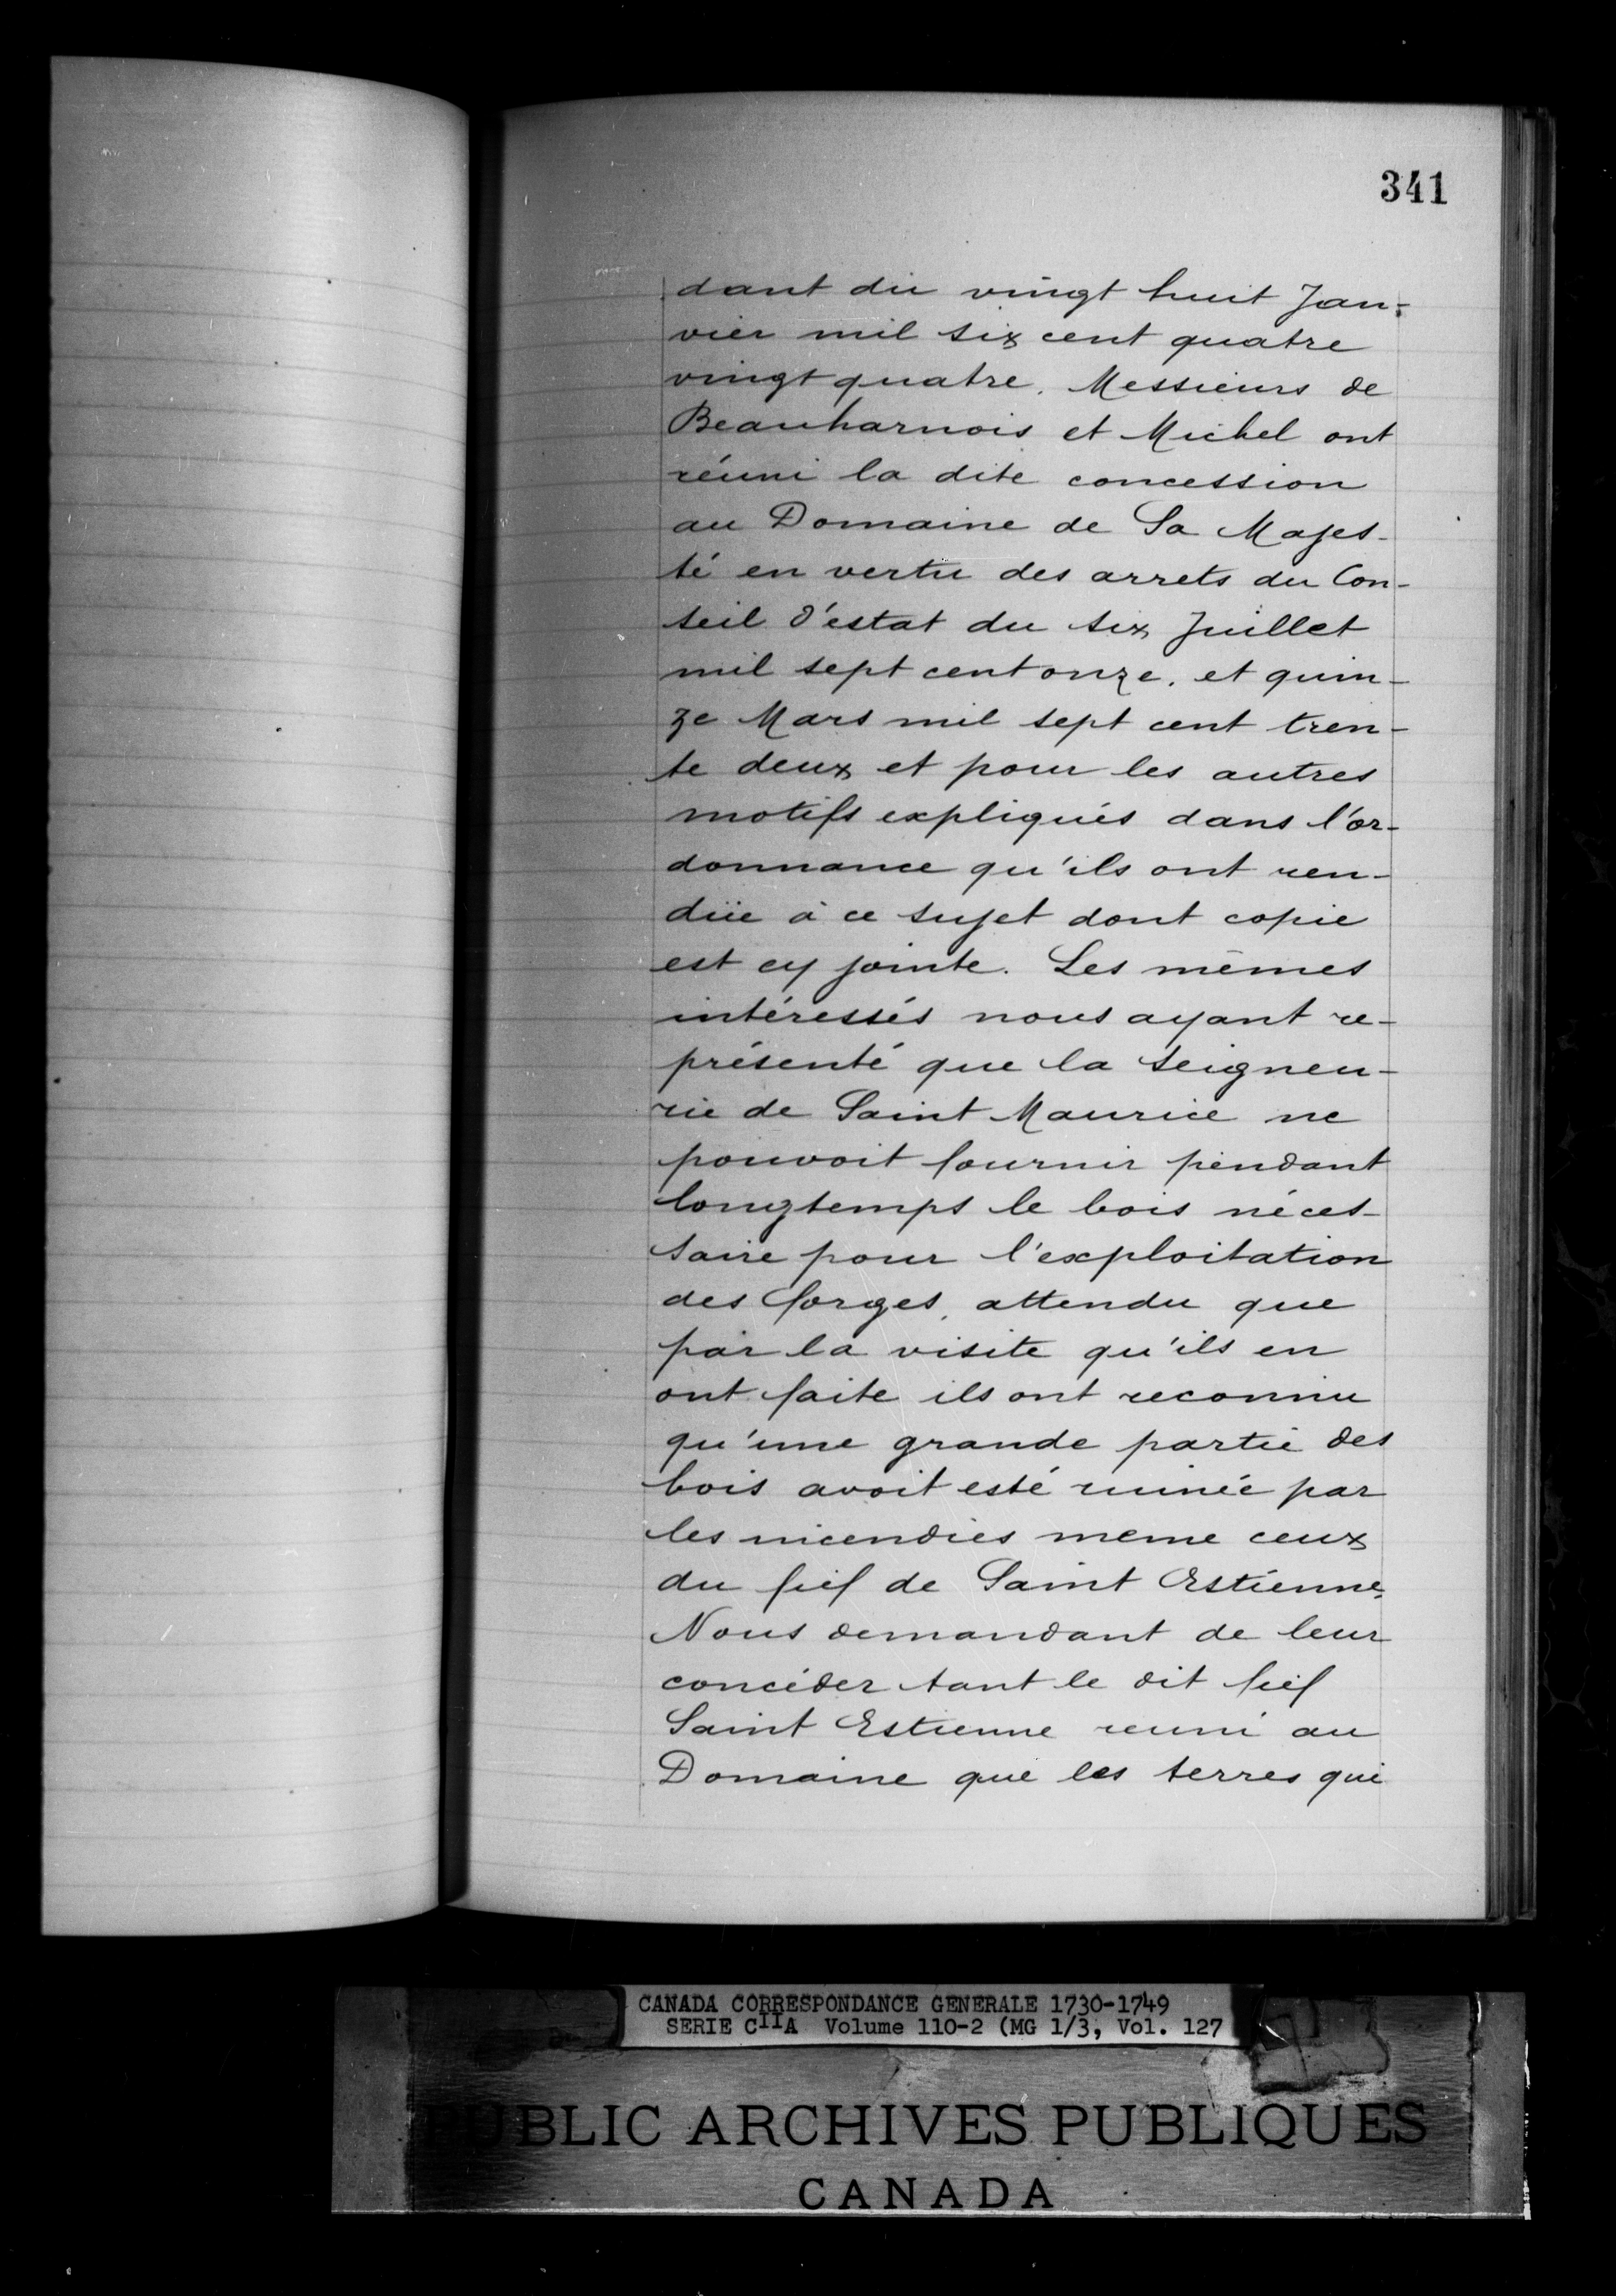 341
dant du vingt huit Jan-
vier mil six cent quatre
vingt quatre. Messieurs de
Beauharnois et Michel ont
réuni la dite concession
au Domaine de Sa Majes-
té en vertu des arrets du Con-
seil d'estat du six Juillet
mil sept cent onze. et quin-
ze Mars mil sept cent tren-
te deux et pour les autres
motifs expliqués dans l'or-
donnance qu'ils ont ren-
düe à ce sujet dont copie
est cy jointe. Les mêmes
intéressés nous ayant re-
présenté que la seigneu-
rie de Saint Maurice ne
pouvoit fournir pendant
longtemps le bois néces-
saire pour l'exploitation
des forges, attendu que
par la visite qu'ils en
ont faite ils ont reconnu
qu'une grande partie des
bois avoit esté ruinée par
les incendies meme ceux
du fief de Saint Estienne,
Nous demandant de leur
concéder tant le dit fief
Saint Estienne reuni au
Domaine que les terres qui
CANADA CORRESPONDANCE GENERALE 1730-1749
SERIE CIIA Volume 110-2 (MG 1/3, Vol. 127
PUBLIC ARCHIVES PUBLIQUES
CANADA